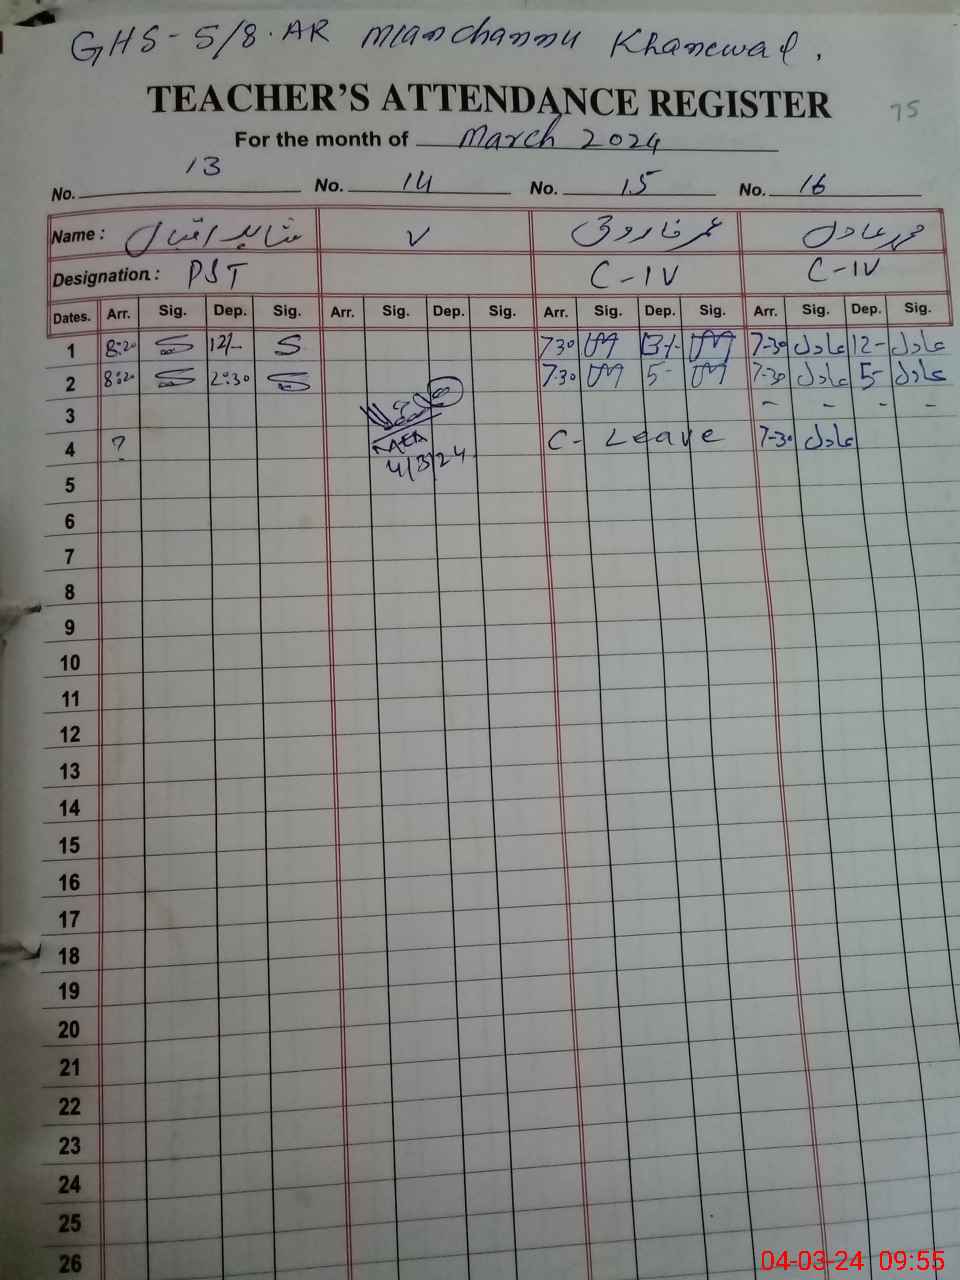 GHS - 5/8. AR Mianchannu Khanewal.
TEACHER'S ATTENDANCE REGISTER
75
For the month of March 2024
No. 13 No. 14 No. 15 No. 16
Name : شاہد اقبال V عمر فاروق محمد عادل
Designation : PST C-IV C-IV
Dates. Arr. Sig. Dep. Sig. Arr. Sig. Dep. Sig. Arr. Sig. Dep. Sig. Arr. Sig. Dep. Sig.
1 8:20 12/- 730 7-30 عادل 12- عادل
2 8:20 2:30 7.30 5- 7-30 عادل 5- عادل
3 - - - -
4 ? C- Leave 7-30 عادل
4/3/24
5
6
7
8
9
10
11
12
13
14
15
16
17
18
19
20
21
22
23
24
25
26
04-03-24 09:55